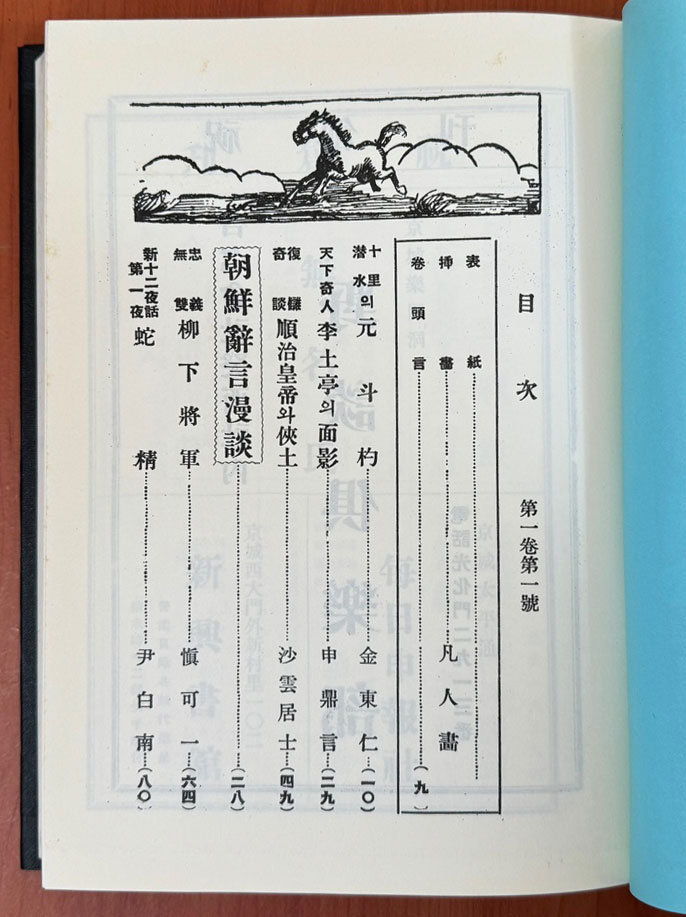 目次 第一卷第一號
表紙
揷畵 凡人畵
卷頭言 (九)
十里潜水의 元斗杓 金東仁 (一〇)
天下奇人 李土亭의面影 申鼎言 (二九)
復讎奇談 順治皇帝와俠士 沙雲居士 (四九)
朝鮮辭言漫談 (二八)
忠義無雙 柳下將軍 愼可一 (六四)
新十二夜話第一夜 蛇精 尹白南 (八〇)